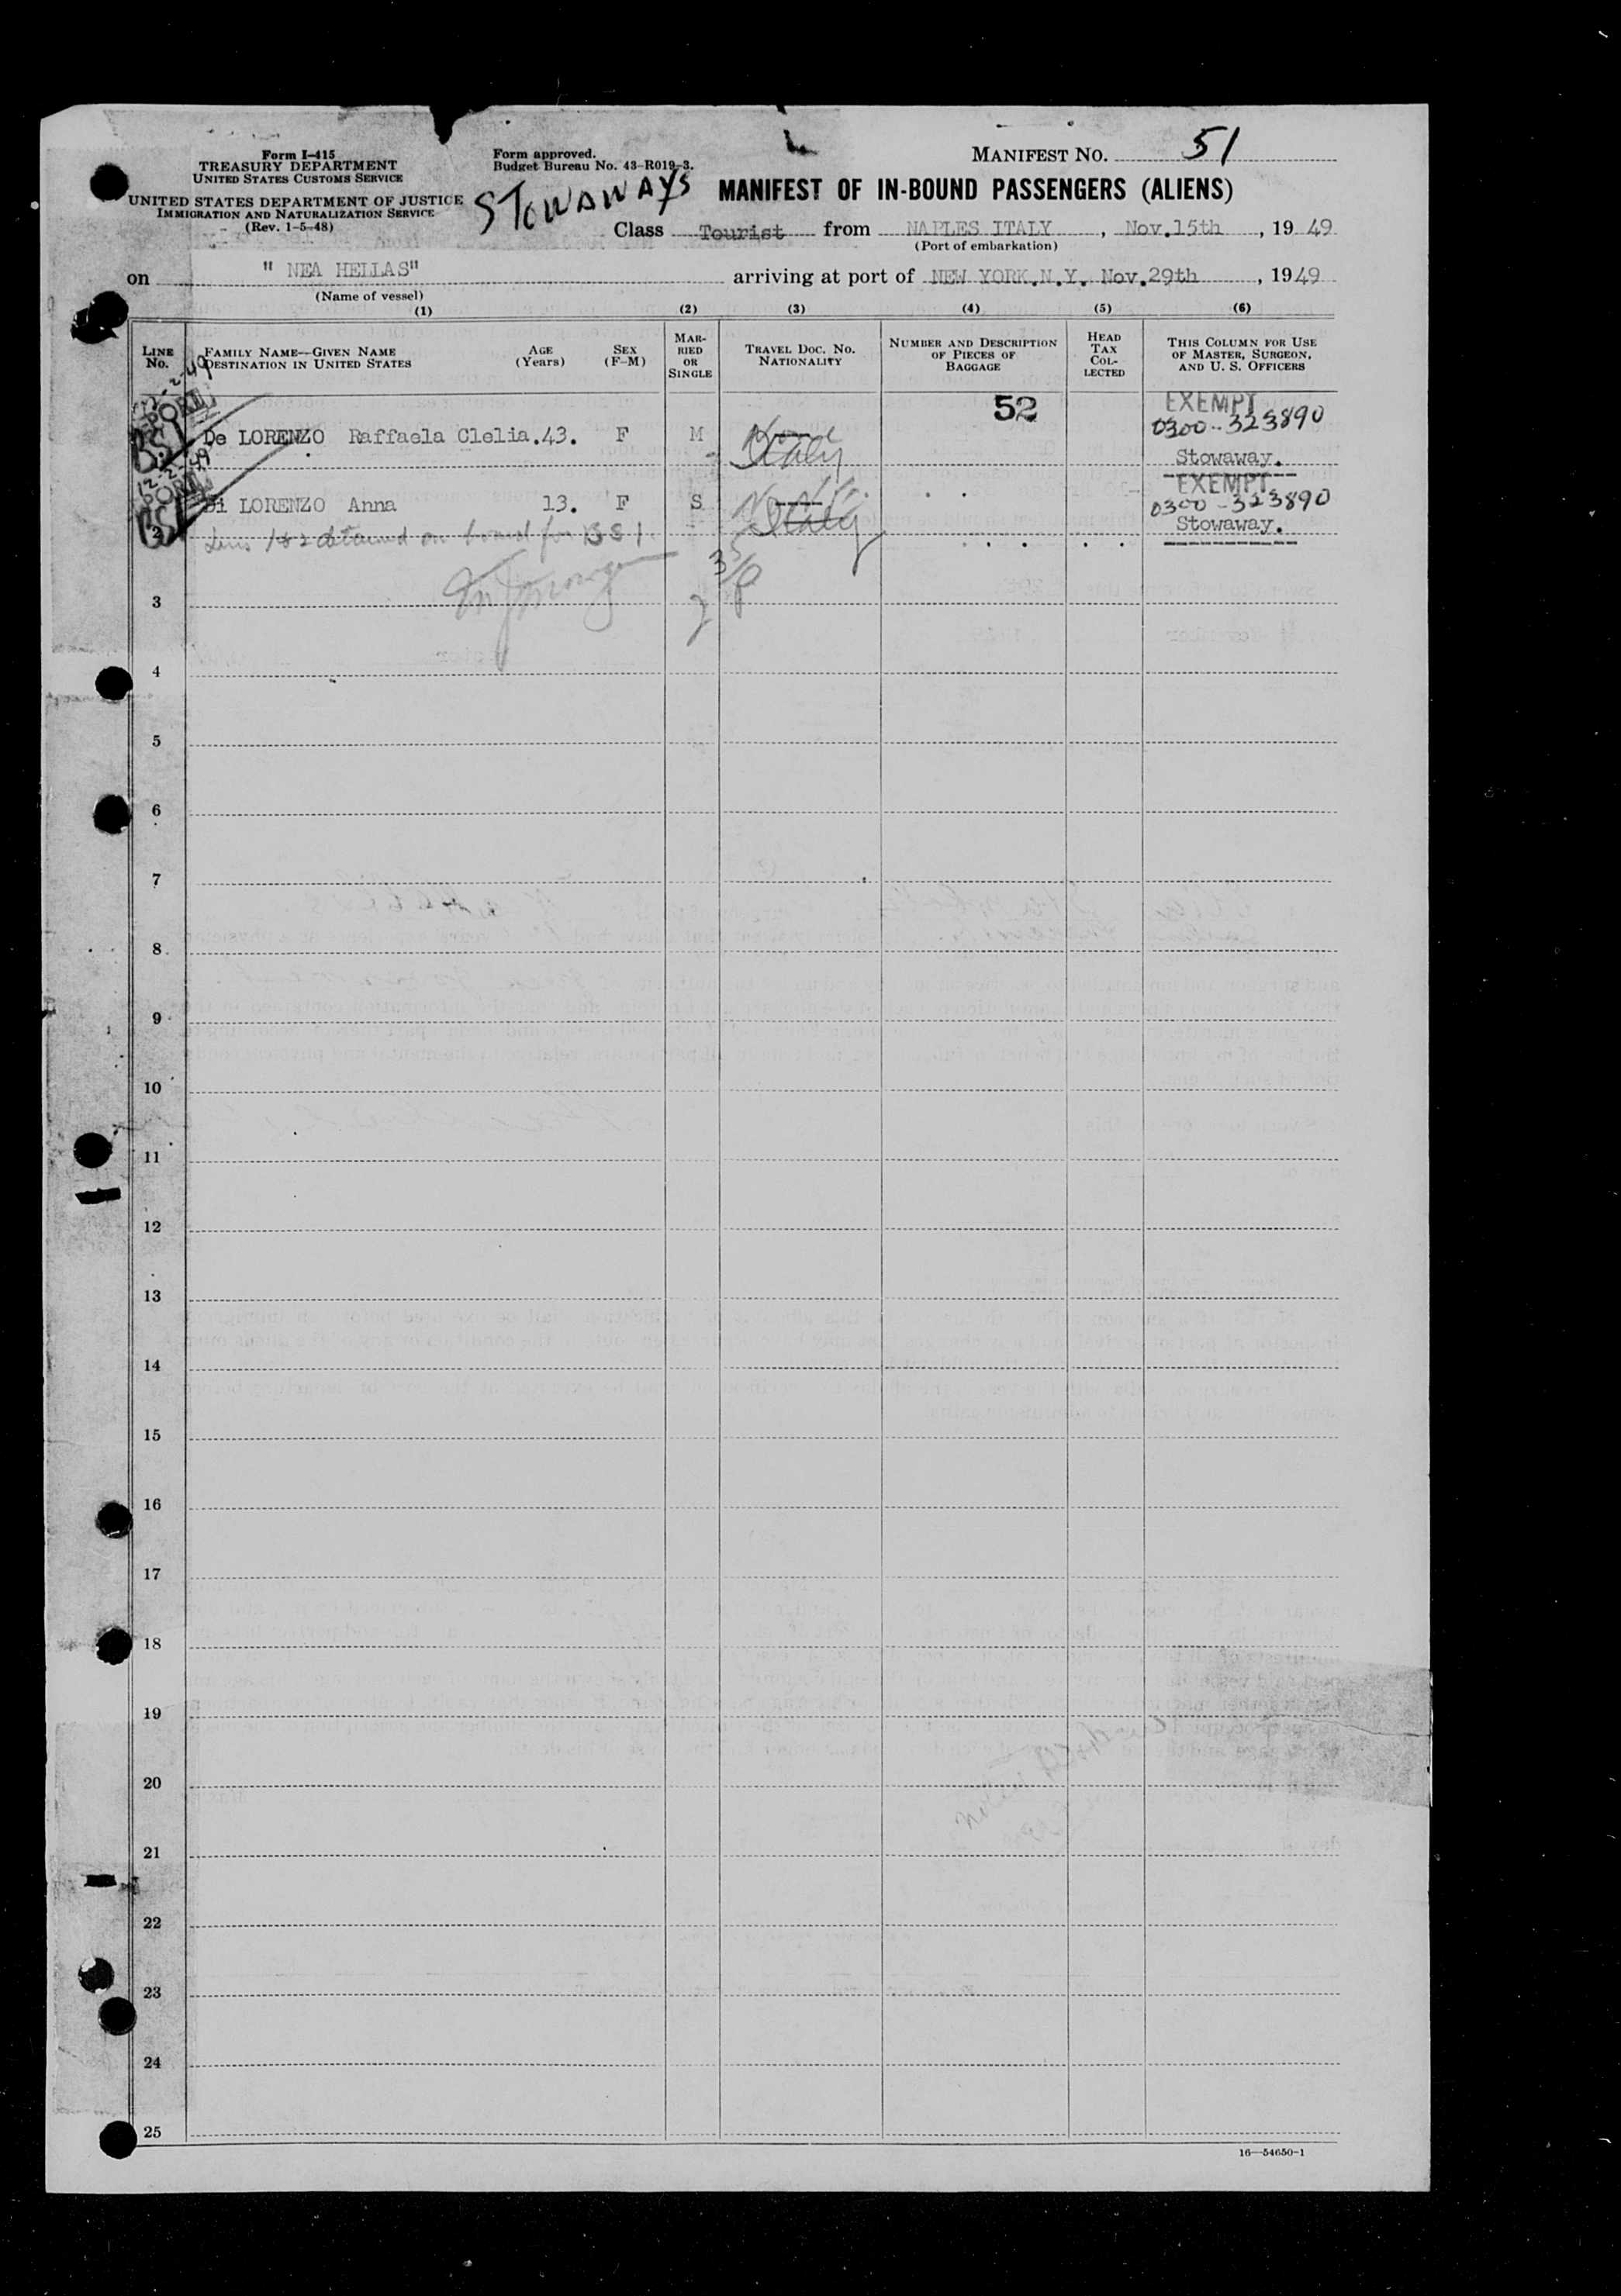 Form I-415
TREASURY DEPARTMENT
UNITED STATES CUSTOMS SERVICE
UNITED STATES DEPARTMENT OF JUSTICE
IMMIGRATION AND NATURALIZATION SERVICE
(Rev. 1-5-48)
Form approved.
Budget Bureau No. 43-R019-3.
STOWAWAYS
MANIFEST NO. 51
MANIFEST OF IN-BOUND PASSENGERS (ALIENS)
Class Tourist from NAPLES ITALY, Nov.15th, 1949
(Port of embarkation)
on " NEA HELLAS" arriving at port of NEW YORK.N.Y. Nov.29th, 1949
(Name of vessel)
(1) (2) (3) (4) (5) (6)
LINE No. FAMILY NAME—GIVEN NAME DESTINATION IN UNITED STATES AGE (Years) SEX (F-M) MARRIED OR SINGLE TRAVEL DOC. NO. NATIONALITY NUMBER AND DESCRIPTION OF PIECES OF BAGGAGE HEAD TAX COLLECTED THIS COLUMN FOR USE OF MASTER, SURGEON, AND U. S. OFFICERS
12-2-49
52 EXEMPT
BSI De LORENZO Raffaela Clelia.43. F M None 0300-323890
Italy Stowaway.
12-2-49
EXEMPT
BSI Di LORENZO Anna 13. F S 0300-323890
2 Italy Stowaway.
Lines 1 & 2 detained on board for BSI.
3
4
5
6
7
8
9
10
11
12
13
14
15
16
17
18
19
20
21
22
23
24
25
16—54650-1